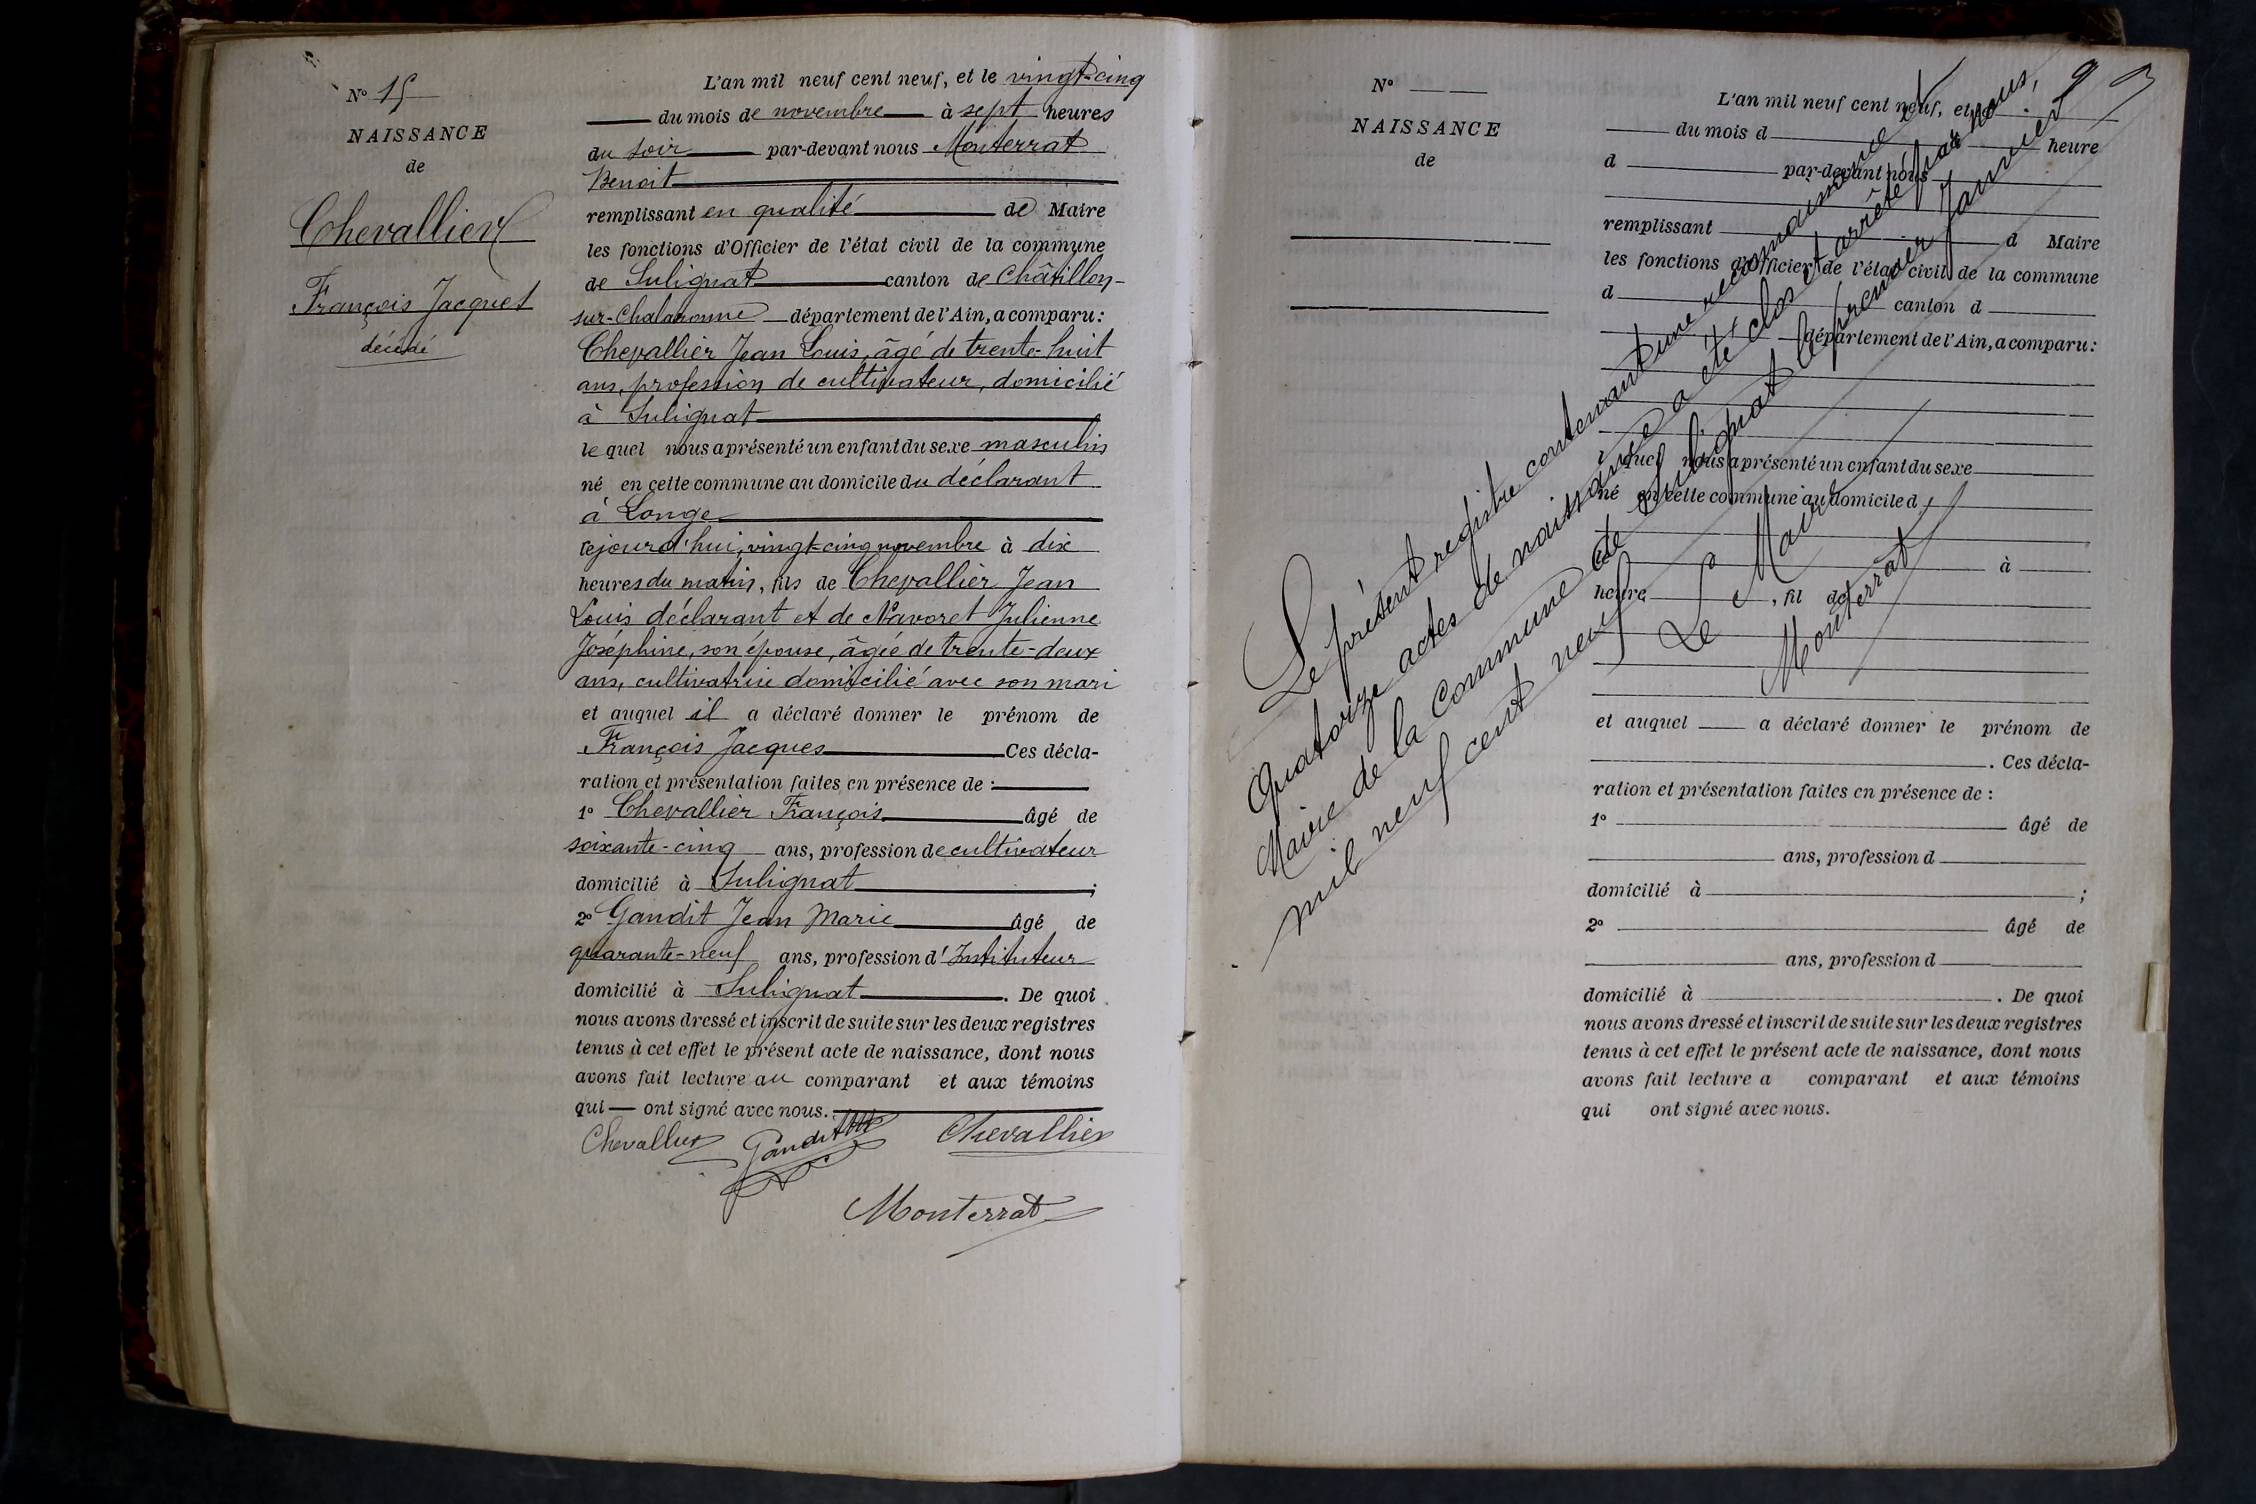 N° 15
NAISSANCE
de
Chevallier
François Jacques
décédé
L'an mil neuf cent neuf, et le vingt-cinq
du mois de novembre à sept heures
du soir par-devant nous Monterrat
Benoit
remplissant en qualité de Maire
les fonctions d'Officier de l'état civil de la commune
de Sulignat canton de Châtillon-
sur-Chalaronne département de l'Ain, a comparu :
Chevallier Jean Louis, âgé de trente-huit
ans, profession de cultivateur, domicilié
à Sulignat
lequel nous a présenté un enfant du sexe masculin
né en cette commune au domicile du déclarant
à Longe
cejourd'hui, vingt-cinq novembre à dix
heures du matin, fils de Chevallier Jean
Louis déclarant et de Navoret Julienne
Joséphine, son épouse, âgée de trente-deux
ans, cultivatrice domicilié avec son mari
et auquel il a déclaré donner le prénom de
François Jacques Ces décla-
ration et présentation faites en présence de :
1° Chevallier François âgé de
soixante-cinq ans, profession de cultivateur
domicilié à Sulignat ;
2° Gandit Jean Marie âgé de
quarante-neuf ans, profession d'Instituteur
domicilié à Sulignat . De quoi
nous avons dressé et inscrit de suite sur les deux registres
tenus à cet effet le présent acte de naissance, dont nous
avons fait lecture au comparant et aux témoins
qui — ont signé avec nous.
Chevallier Gandit Chevallier
Monterrat
N°
NAISSANCE
de
L'an mil neuf cent neuf, et
du mois d heure
d par-devant nous
remplissant d Maire
les fonctions d'Officier de l'état civil de la commune
d canton d
département de l'Ain, a comparu :
quel nous a présenté un enfant du sexe
né en cette commune au domicile d
à
heure , fil de
et auquel a déclaré donner le prénom de
. Ces décla-
ration et présentation faites en présence de :
1° âgé de
ans, profession d
domicilié à ;
2° âgé de
ans, profession d
domicilié à . De quoi
nous avons dressé et inscrit de suite sur les deux registres
tenus à cet effet le présent acte de naissance, dont nous
avons fait lecture a comparant et aux témoins
qui ont signé avec nous.
Le présent registre contenant une reconnaissance et
quatorze actes de naissance a été clos et arrêté par nous,
Maire de la commune de Sulignat le premier Janvier
mil neuf cent neuf
Le Maire
Monterrat